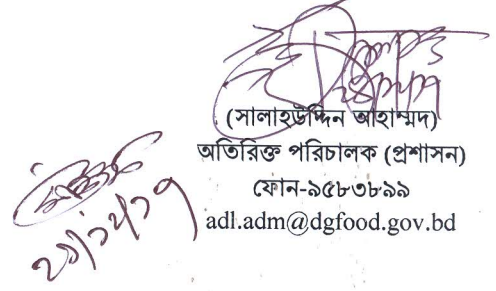 (সালাহউদ্দিন আহাম্মদ)
অতিরিক্ত পরিচালক (প্রশাসন)
ফোন-৯৫৮৩৮৯৯
adl.adm@dgfood.gov.bd